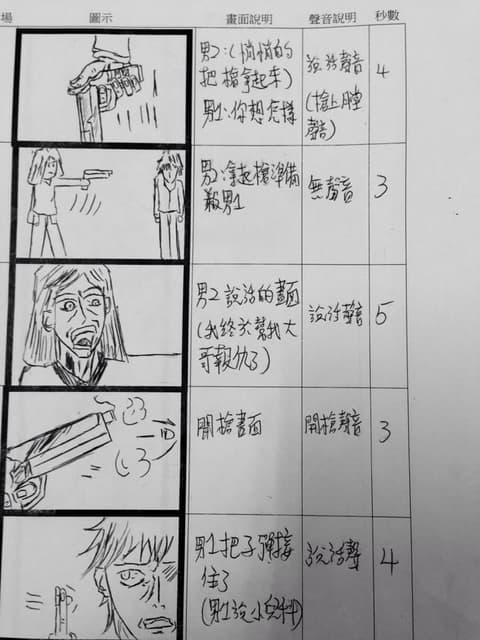 場 圖示 畫面說明 聲音說明 秒數
男2:(悄悄的
把槍拿起來)
男1:你想怎樣
說話聲音
(槍上膛
聲)
4
男2拿起槍準備
殺男1
無聲音
3
男2說話的畫面
(我終於幫我大
哥報仇了)
說話聲音
5
開槍畫面
開槍聲音
3
男1把子彈接
住了
(男1說小兒科)
說話聲
4